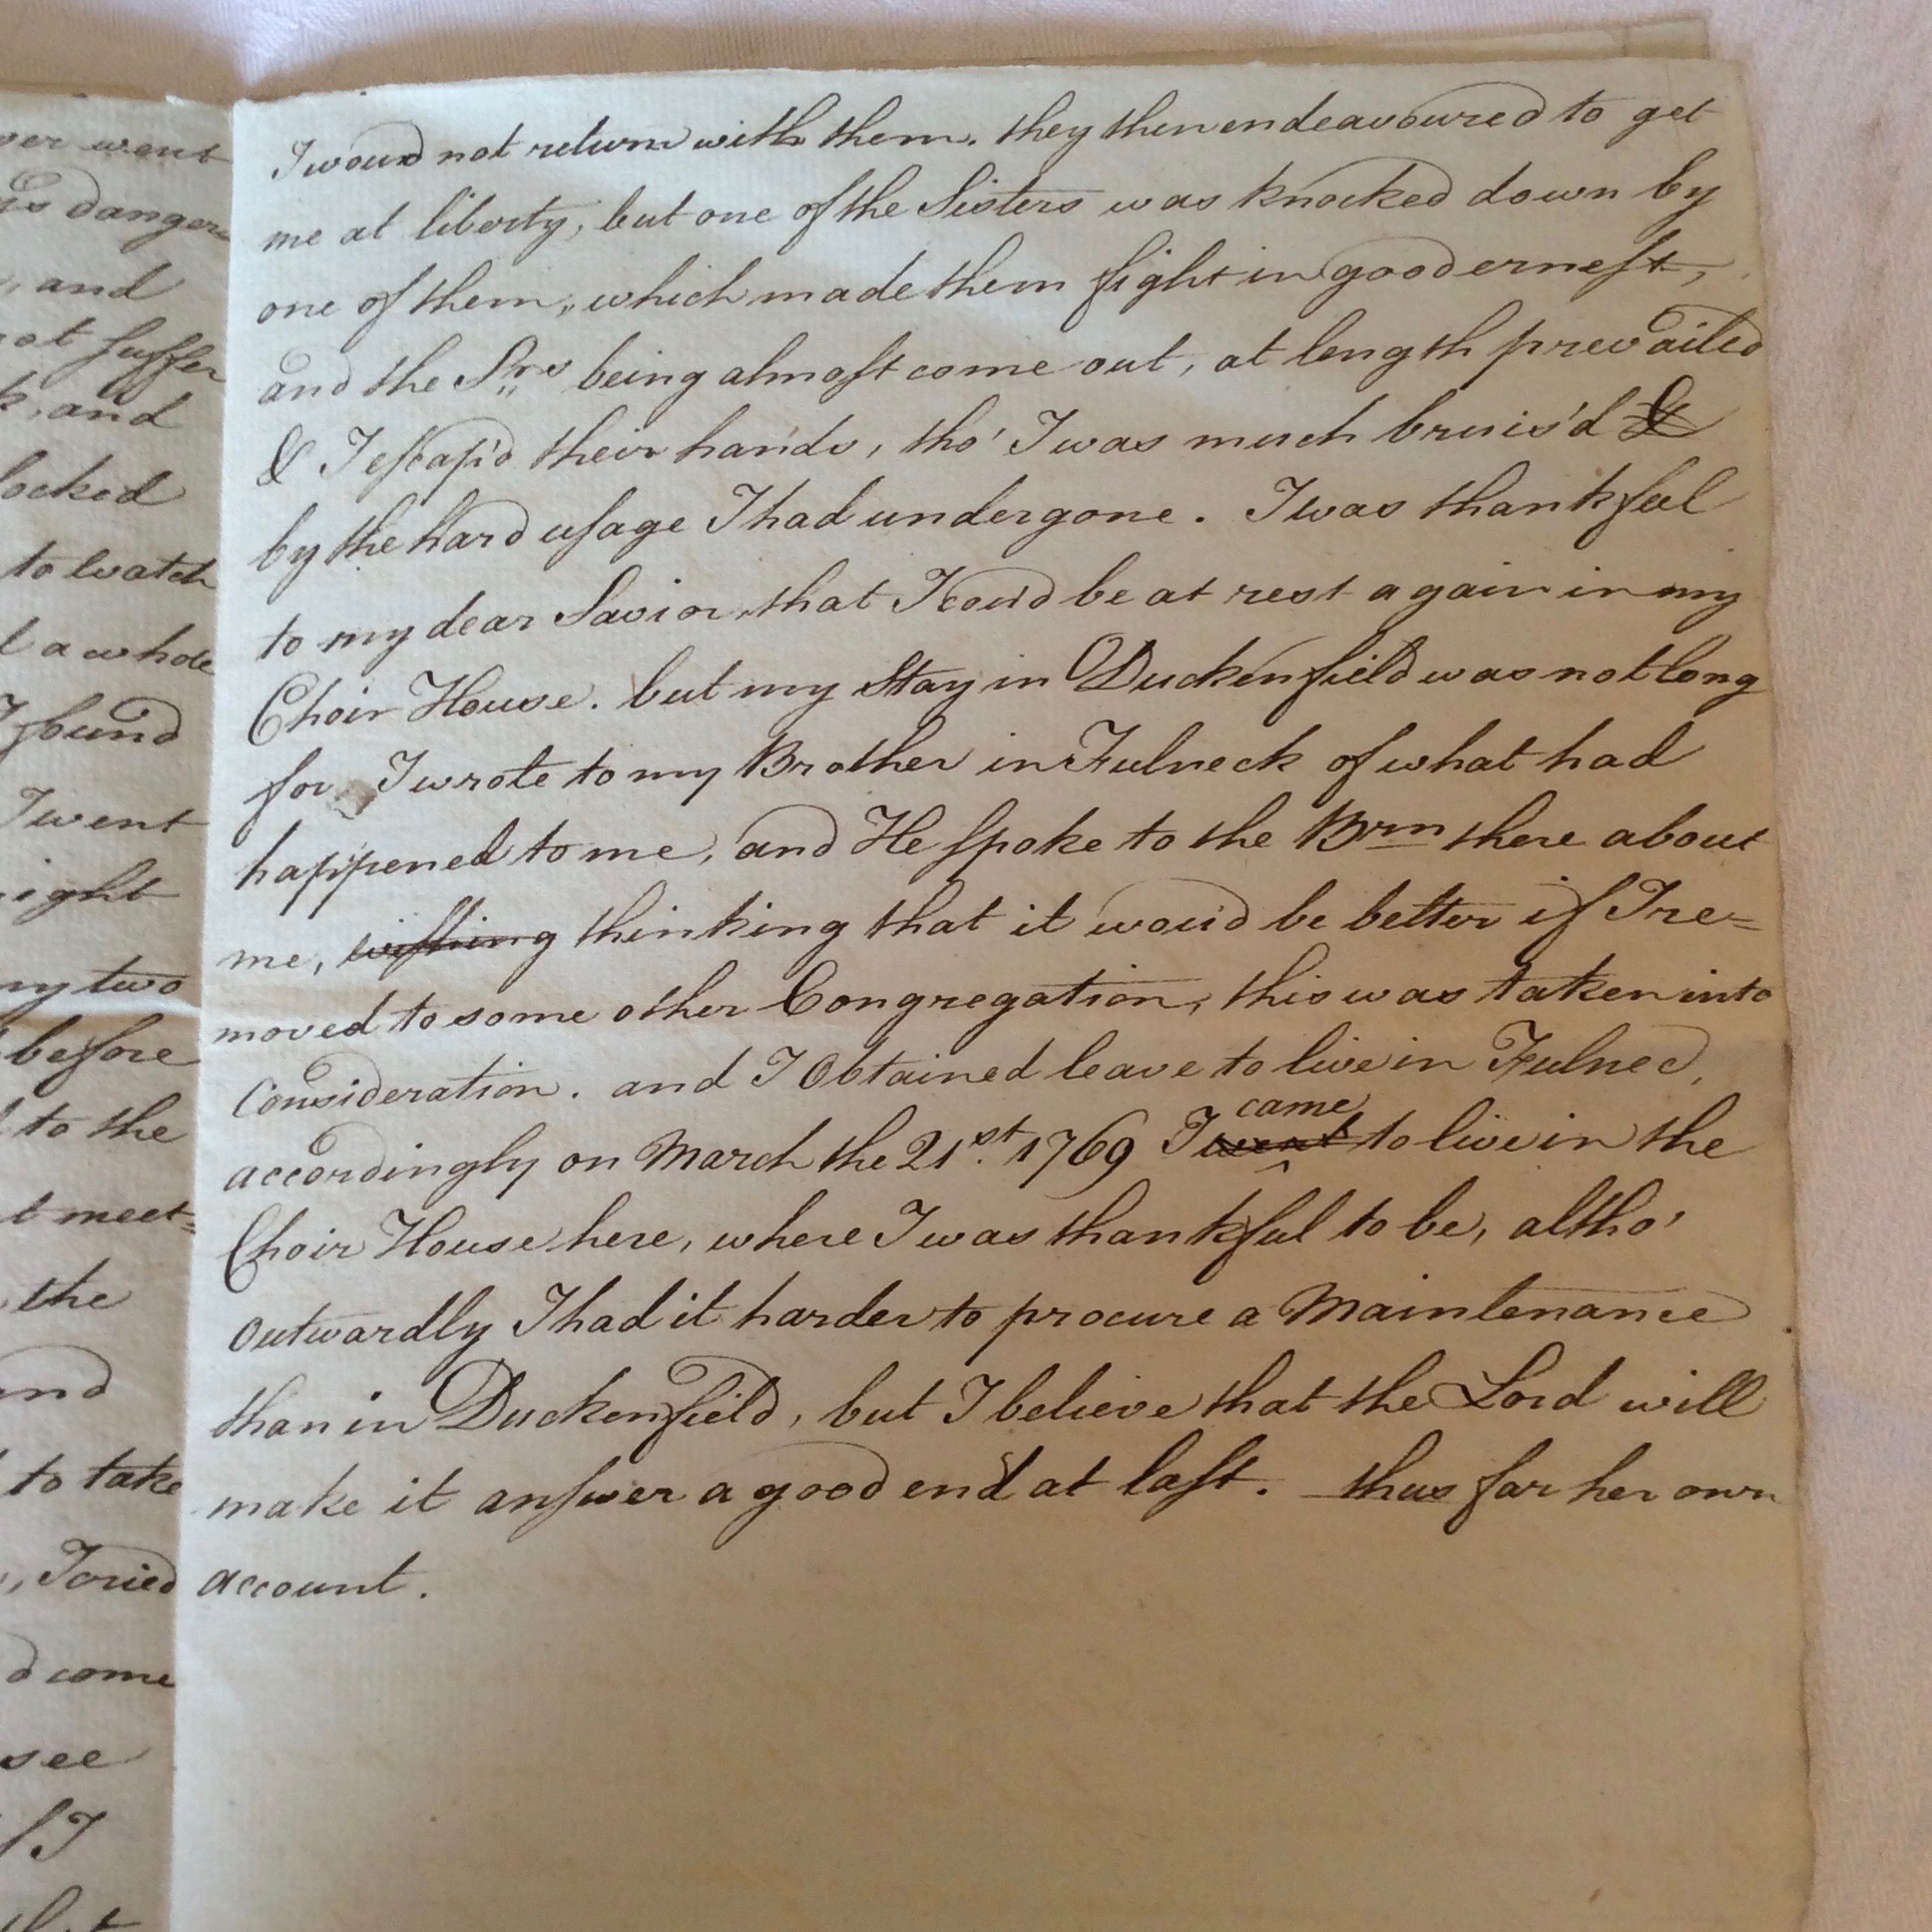 ver went
is danger
, and
not suffer
k, and
locked
to watch
l a whole
I found
I went
night
my two
before
to the
t meet=
the
and
to take
, I cried
d come
see
f I
I wou'd not return with them. they then endeavoured to get
me at liberty, but one of the Sisters was knocked down by
one of them, which made them fight in good ernest,
and the Srs being almost come out, at length prevailed
& I escap'd their hands, tho' I was much bruis'd &
by the hard usage I had undergone. I was thankful
to my dear Savior, that I cou'd be at rest again in my
Choir House. but my Stay in Duckenfield was not long
for I wrote to my Brother in Fulneck of what had
happened to me, and He spoke to the Brn there about
me, wishing thinking that it wou'd be better if I re=
moved to some other Congregation, this was taken into
Consideration. and I Obtained leave to live in Fulnec,
accordingly on March the 21st. 1769 I went came to live in the
Choir House here, where I was thankful to be, altho'
Outwardly I had it harder to procure a Maintenance
than in Duckenfield, but I believe that the Lord will
make it answer a good end at last. thus far her own
account.